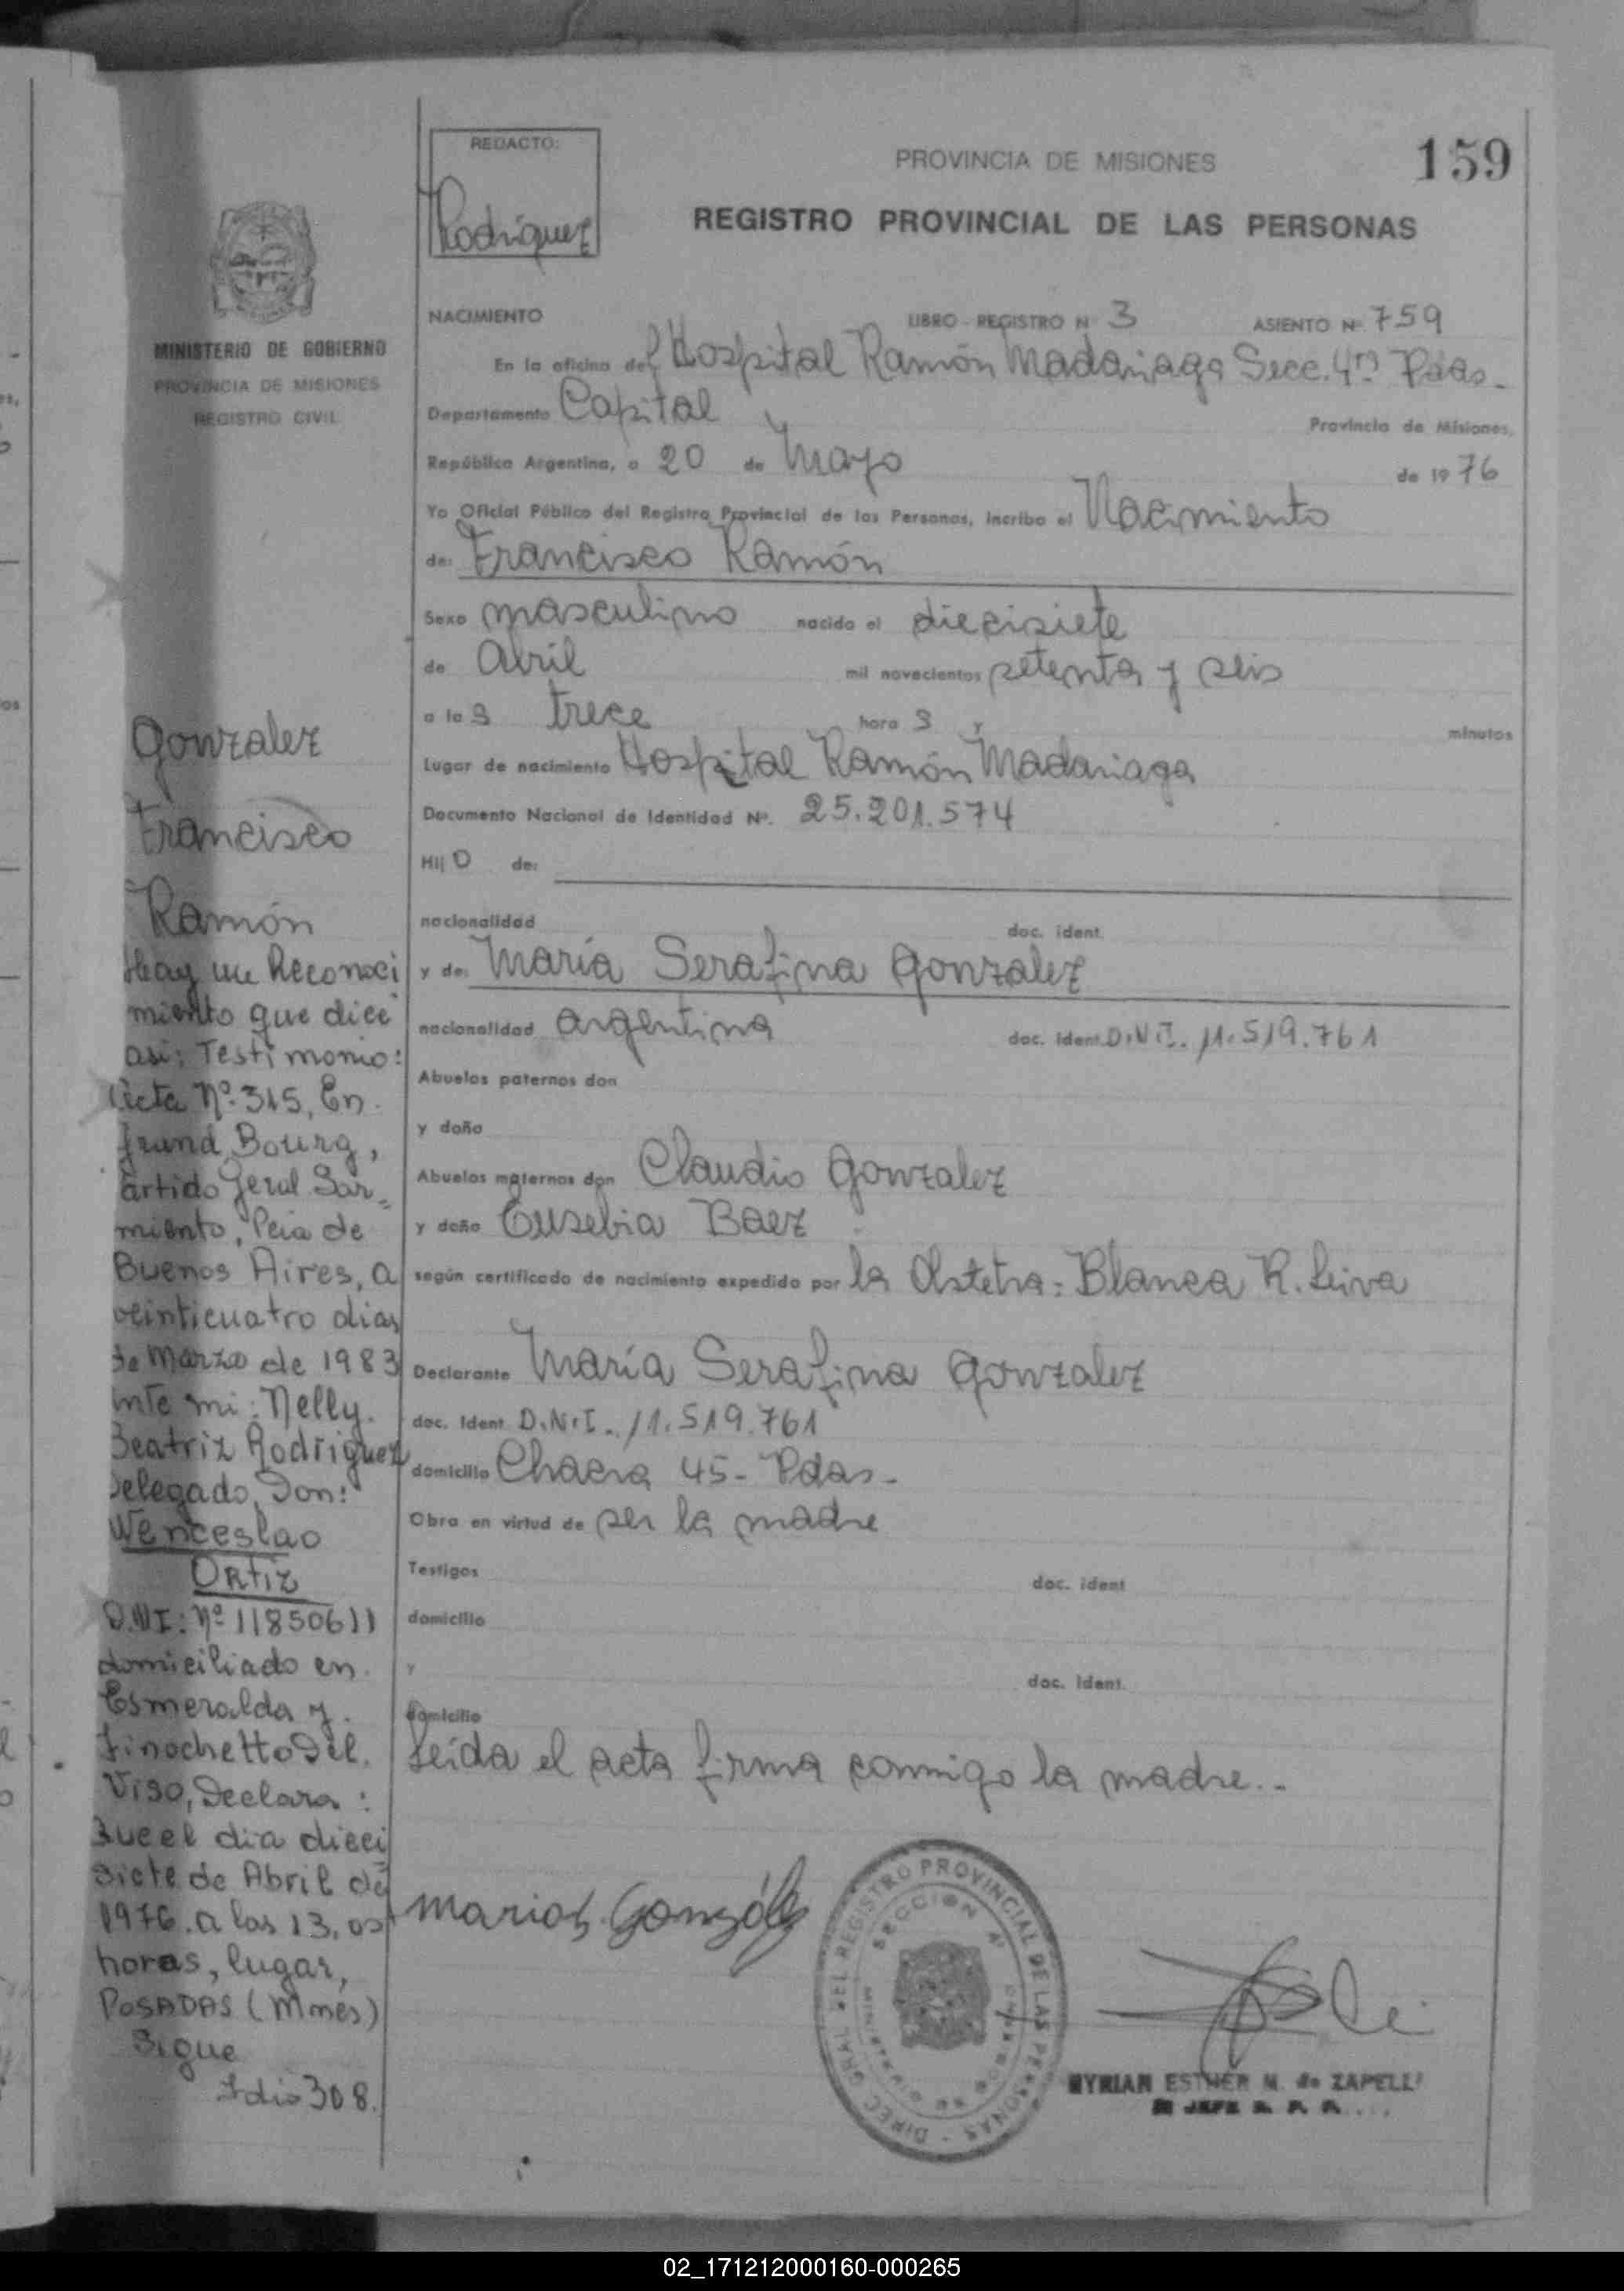 REDACTO:
Rodríguez
PROVINCIA DE MISIONES
159
REGISTRO PROVINCIAL DE LAS PERSONAS
MINISTERIO DE GOBIERNO
PROVINCIA DE MISIONES
REGISTRO CIVIL
NACIMIENTO LIBRO - REGISTRO N 3 ASIENTO Nº 759
En la oficina del Hospital Ramón Madariaga Secc. 4ta Pdas.
Departamento Capital Provincia de Misiones,
República Argentina, a 20 de Mayo de 1976
Yo Oficial Público del Registro Provincial de las Personas, incribo el Nacimiento
de: Francisco Ramón
Sexo masculino nacido el diecisiete
de Abril mil novecientos setenta y seis
a las trece horas y minutos
Lugar de nacimiento Hospital Ramón Madariaga
Documento Nacional de Identidad Nº. 25.201.574
Hijo de:
nacionalidad doc. ident.
y de: María Serafina Gonzalez
nacionalidad argentina doc. ident. D.N.I. 11.519.761
Abuelos paternos don
y doña
Abuelos maternos don Claudio Gonzalez
y doña Eusebia Baez
según certificado de nacimiento expedido por la Obstetra: Blanca R. Leiva
Declarante María Serafina Gonzalez
doc. ident D.N.I. 11.519.761
domicilio Chacra 45 - Pdas -
Obra en virtud de ser la madre
Testigos doc. ident
domicilio
y doc. ident.
domicilio
Leída el acta firma conmigo la madre..-
Maria S. González
DIREC GRAL DEL REGISTRO PROVINCIAL DE LAS PERSONAS
SECCION 4ª
MYRIAN ESTHER M. de ZAPELLI
Gonzalez
Francisco
Ramón
Hay un Reconoci
miento que dice
asi: Testimonio:
Acta Nº. 315, En.
Grand Bourg,
Partido Geral Sar=
miento, Pcia de
Buenos Aires, a
veinticuatro dias
de Marzo de 1983
Ante mi: Nelly.
Beatriz Rodriguez
Delegado, Don:
Wenceslao
Ortiz
D.N.I: Nº 11850611
domiciliado en.
Esmeralda y.
Finochetto Del.
Viso, Declara:
Que el dia dieci
siete de Abril de
1976. a las 13,00
horas, lugar,
POSADAS (Mnes)
Sigue
Folio 308.
02_171212000160-000265